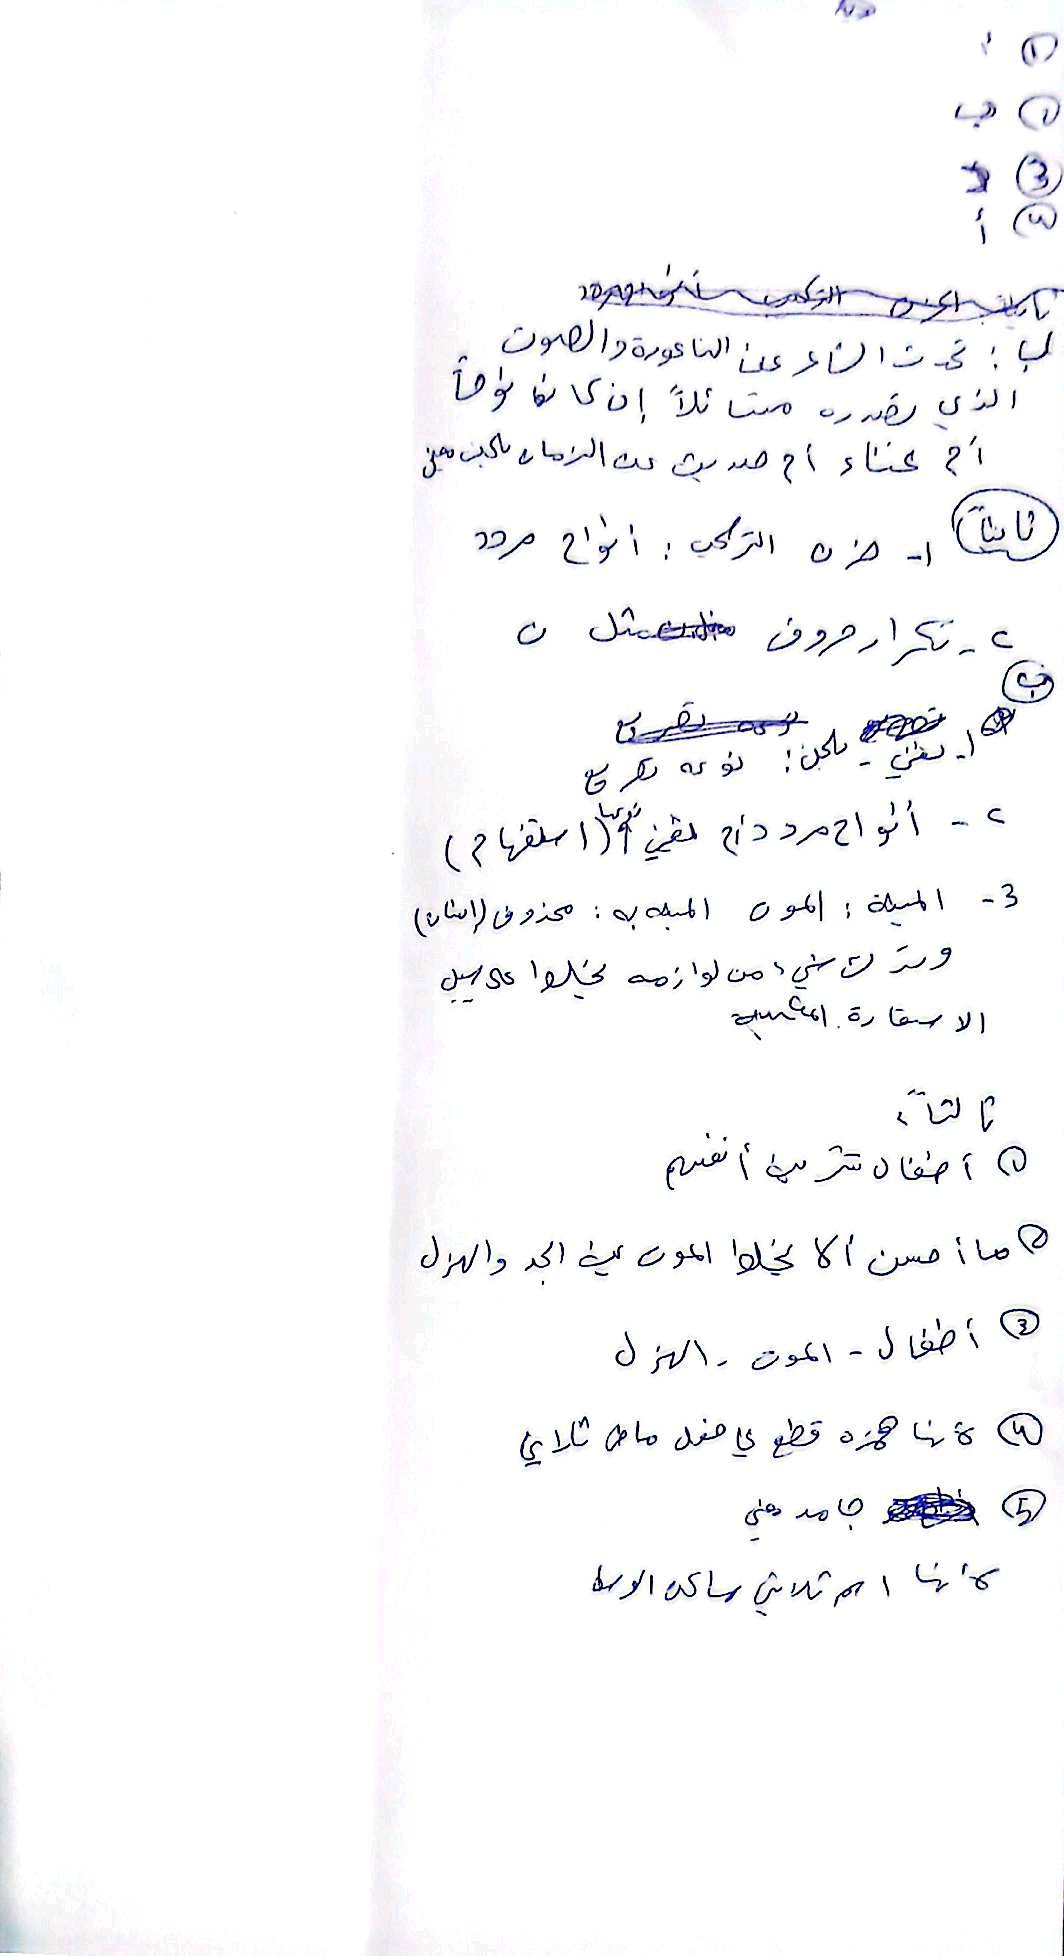 ① أ
② ب
③ د
④ أ
ب: تحدث الشاعر عن الناعورة والصوت
الذي تصدره متسائلاً إن كان نواحاً
أم غناء أم حديث عن الزمان بلحن معين
ثانياً ١- حزن التركيب: أنواح مردد
٢- تكرار حروف مثل ن
ب
١- تغني - بلحن: نوعه تصريع
٢- أنواح مردد أم تغني نوعها (استفهام)
3- المشبه: الموت المشبه به: محذوف (إنسان)
وترك شيء من لوازمه يخيطوا على سبيل
الاستعارة المكنية
ثالثاً:
① أطفال تثر من أنفسهم
② ما أحسن ألا يخلطوا الموت بين الجد والهزل
③ أطفال - الموت - الهزل
④ لأنها همزة قطع في فعل ماض ثلاثي
⑤ جامد معنى
لأنها اسم ثلاثي ساكن الوسط